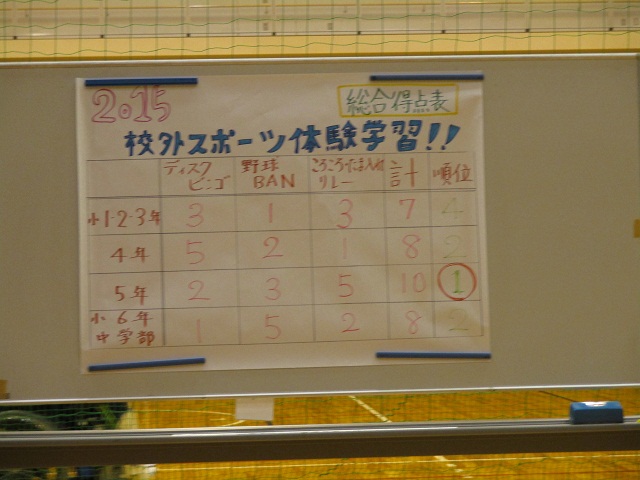 2015
総合得点表
校外スポーツ体験学習!!
ディスクビンゴ 野球BAN ころころ・たま入れリレー 計 順位
小1・2・3年 3 1 3 7 4
4年 5 2 1 8 2
5年 2 3 5 10 1
小6年中学部 1 5 2 8 2